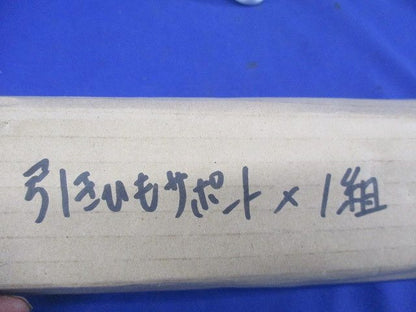 引きひもサポート×1組